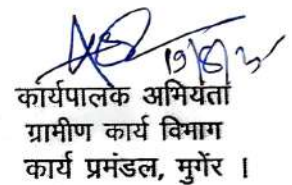 19/8/
कार्यपालक अभियंता
ग्रामीण कार्य विभाग
कार्य प्रमंडल, मुगेंर ।